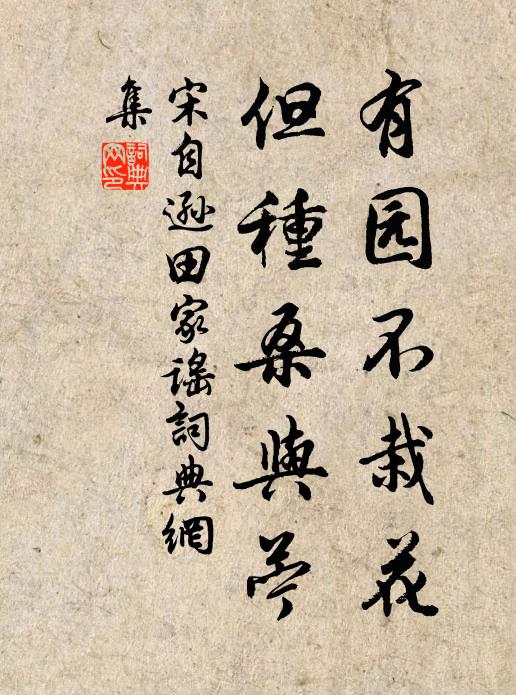 有园不栽花
但種桑與苧
宋自遜田家謠詞典網
集
詞典
网印